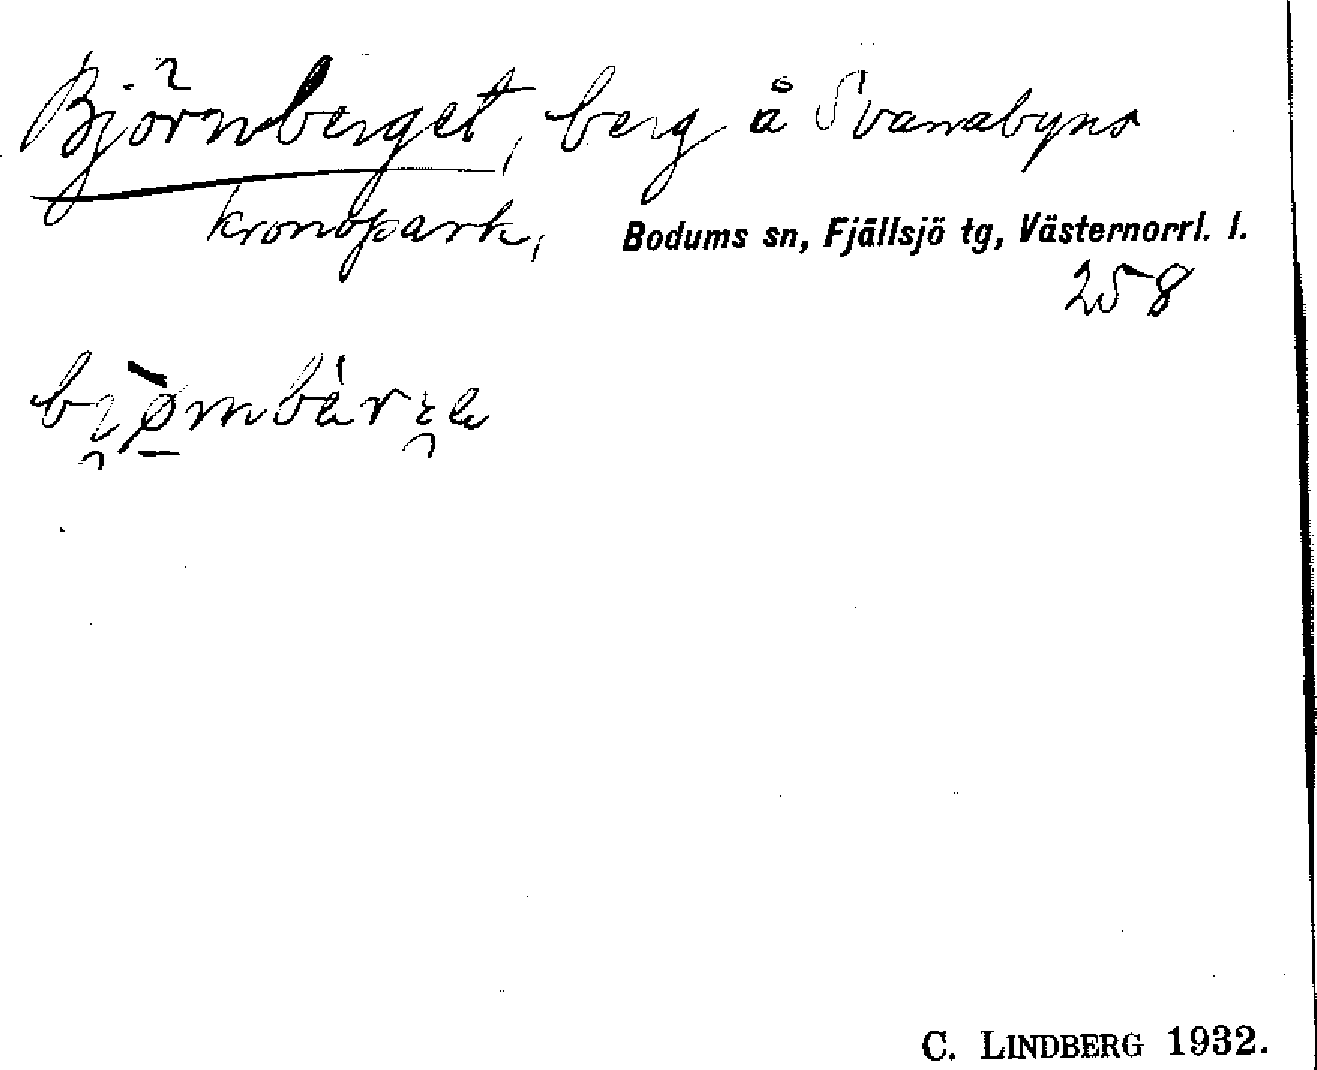 Björnberget, berg å Svanabyns
kronopark, Bodums sn, Fjällsjö tg, Västernorrl. l.
258
C. LINDBERG 1932.